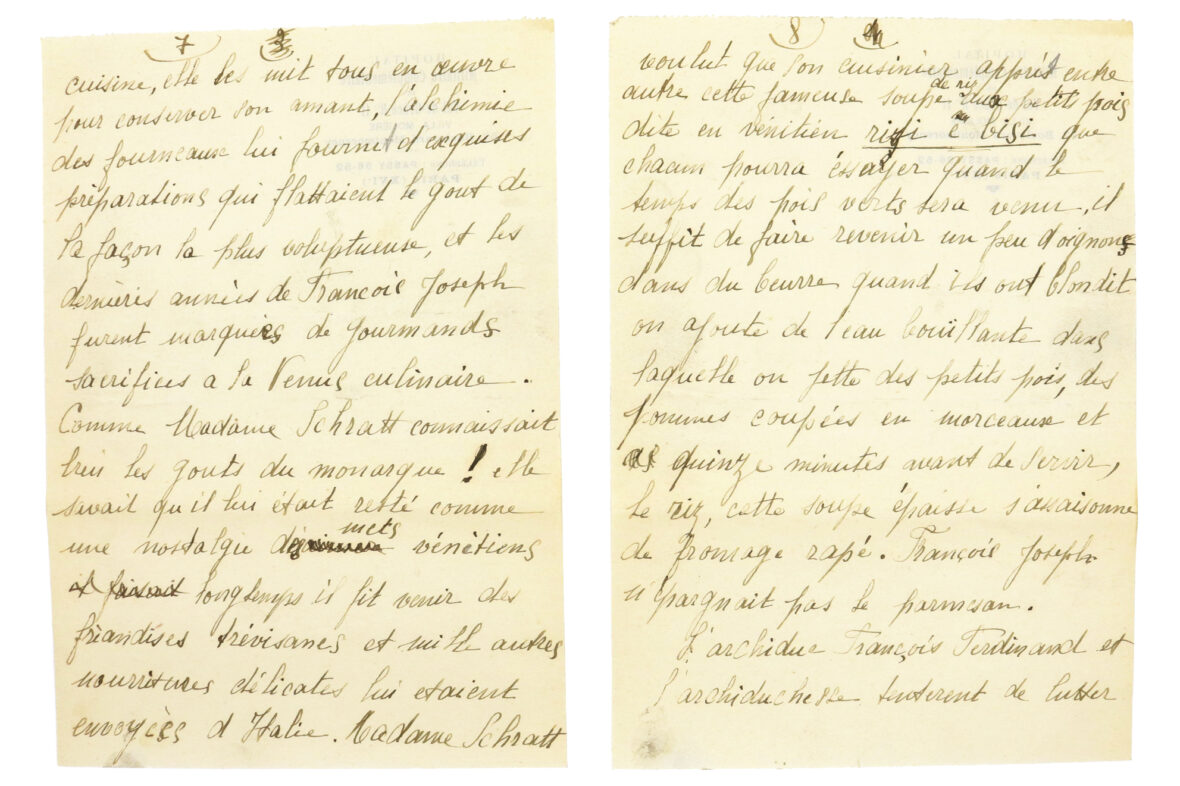 7
cuisine, elle les mit tous en œuvre
pour conserver son amant, l'alchimie
des fourneaux lui fournit d'exquises
préparations qui flattaient le gout de
la façon la plus voluptueuse, et les
dernières années de François Joseph
furent marquées de gourmands
sacrifices a la Venus culinaire.
Comme Madame Schratt connaissait
bien les gouts du monarque ! elle
savait qu'il lui était resté comme
une nostalgie des mets vénétiens
il faisait longtemps il fit venir des
friandises trévisanes et mille autres
nourritures délicates lui etaient
envoyées d'Italie. Madame Schratt
8
voulut que son cuisinier apprit entre
autre cette fameuse soupe de riz aux petits pois
dite en vénitien risi e bisi que
chacun pourra éssayer quand le
temps des pois verts sera venu, il
suffit de faire revenir un peu d'oignons
dans du beurre quand ils ont blondit
on ajoute de l'eau bouïllante dans
laquelle on jette des petits pois, des
pommes coupées en morceaux et
quinze minutes avant de servir,
le riz, cette soupe épaisse s'assaisonne
de fromage rapé. François Joseph
n'épargnait pas le parmesan.
L'archiduc François Ferdinand et
l'archiduchesse tentèrent de lutter